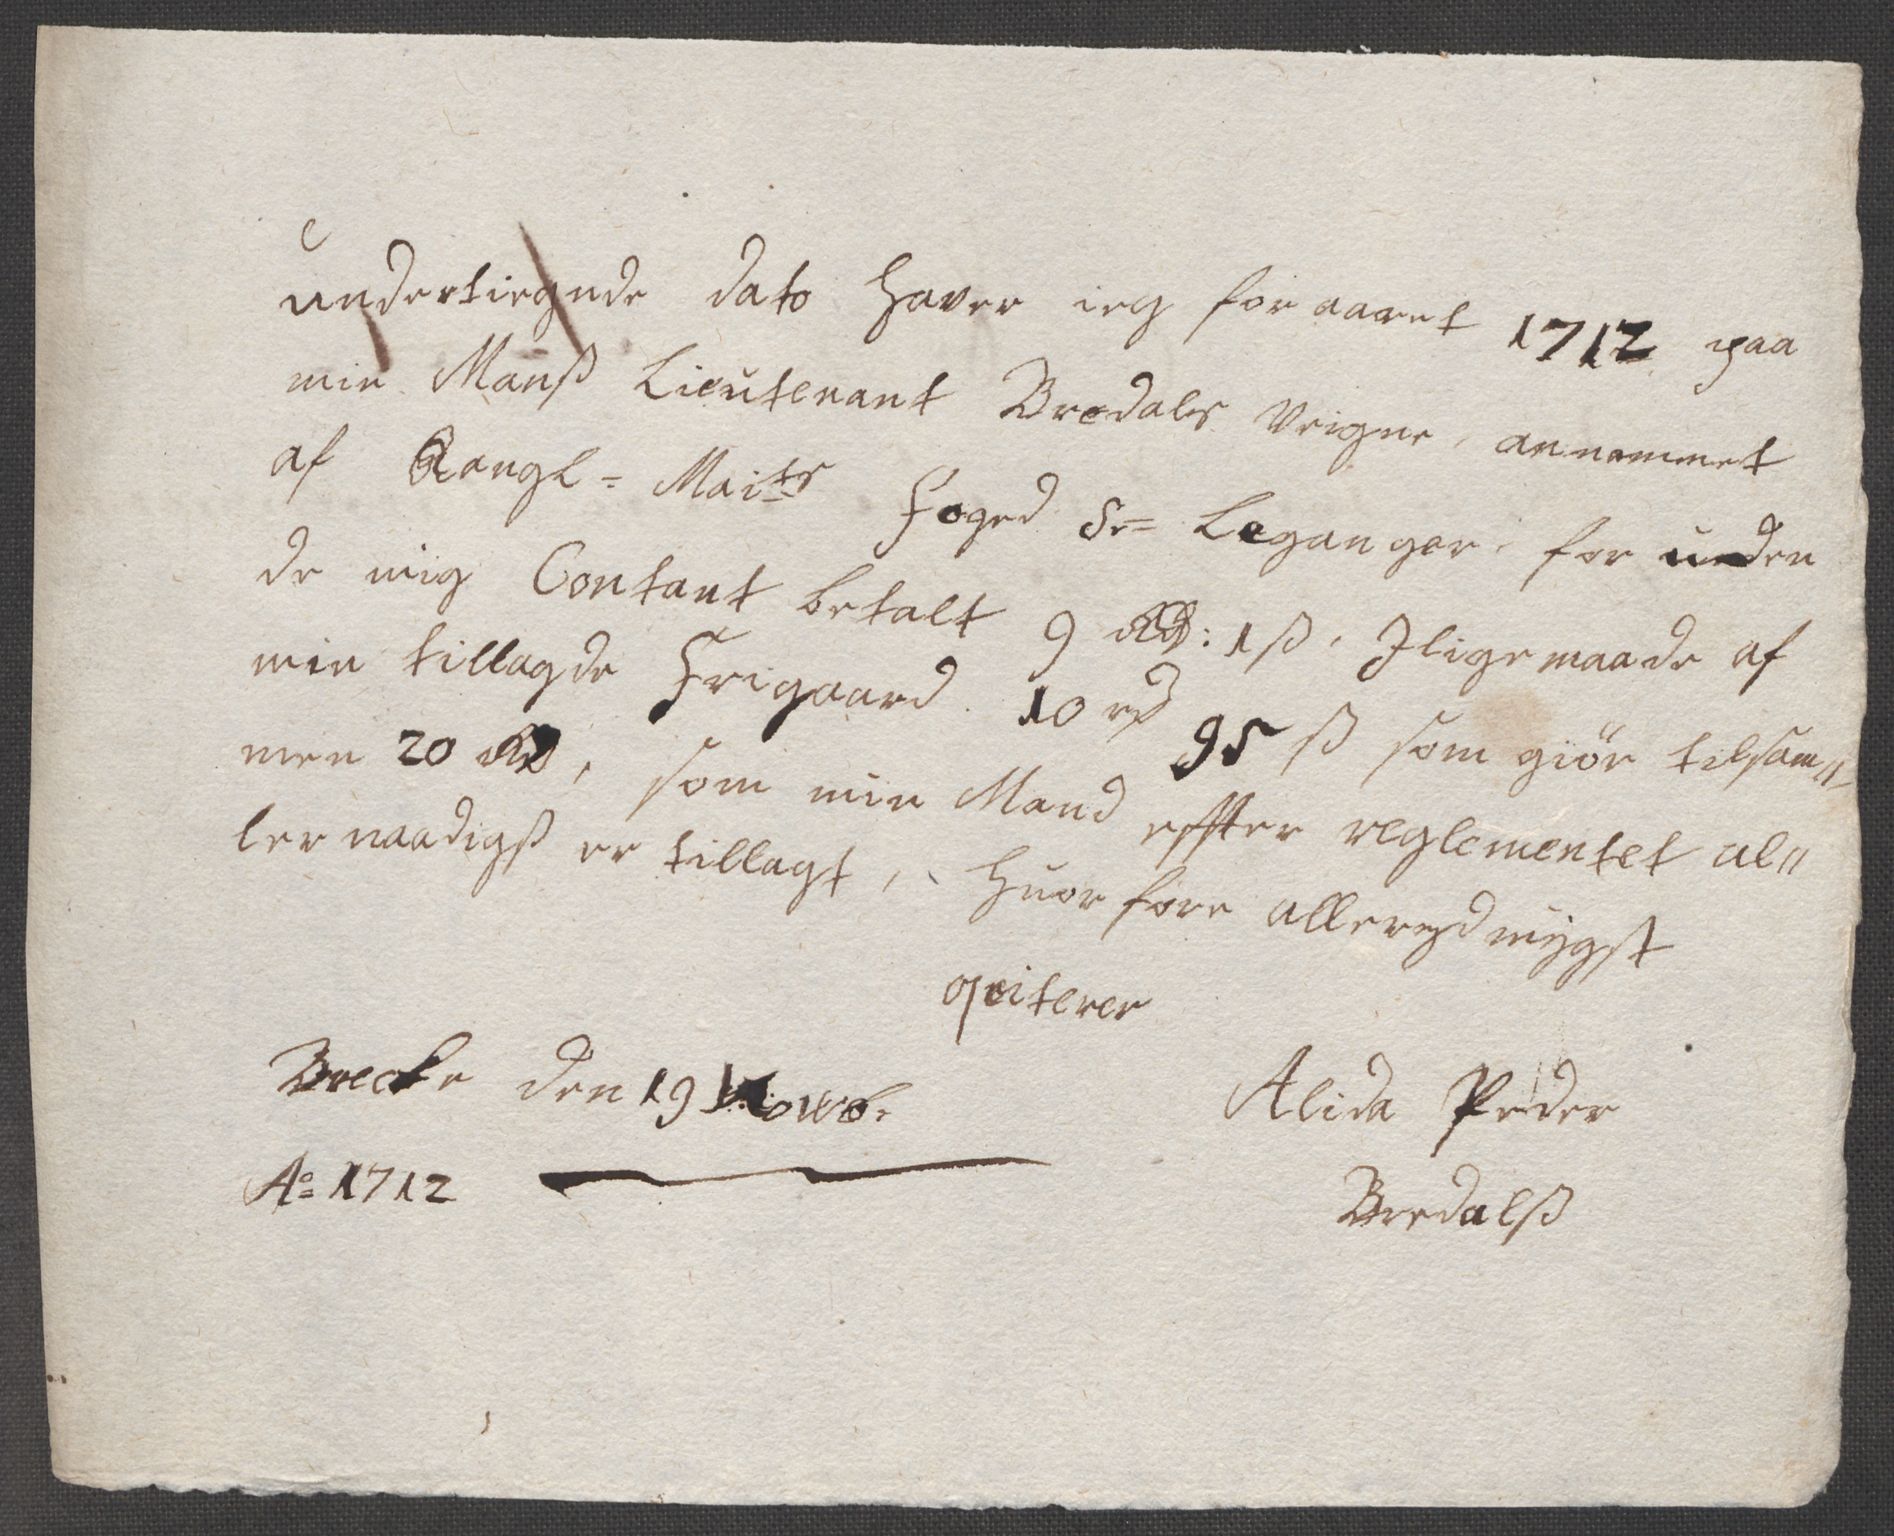 undertiegnde dato haver ieg for aaret 1712 paa
min Manß Lieutenant Bredals Veigne, annammet
af Kongl= Maits Foged Sr= Leganger, for uden
de mig Contant betalt 9 Rd: 1 ß, Jligemaade af
min tillagde Frigaard 10 rd 95 ß som giör tilsam//
men 20 Rd, som min Mand effter reglementet al//
lernaadigß er tillagt, huorfore allerydmygst
qviterer
Brecke den 19 Novb:
Ao= 1712
Alida Peder
Bredalß